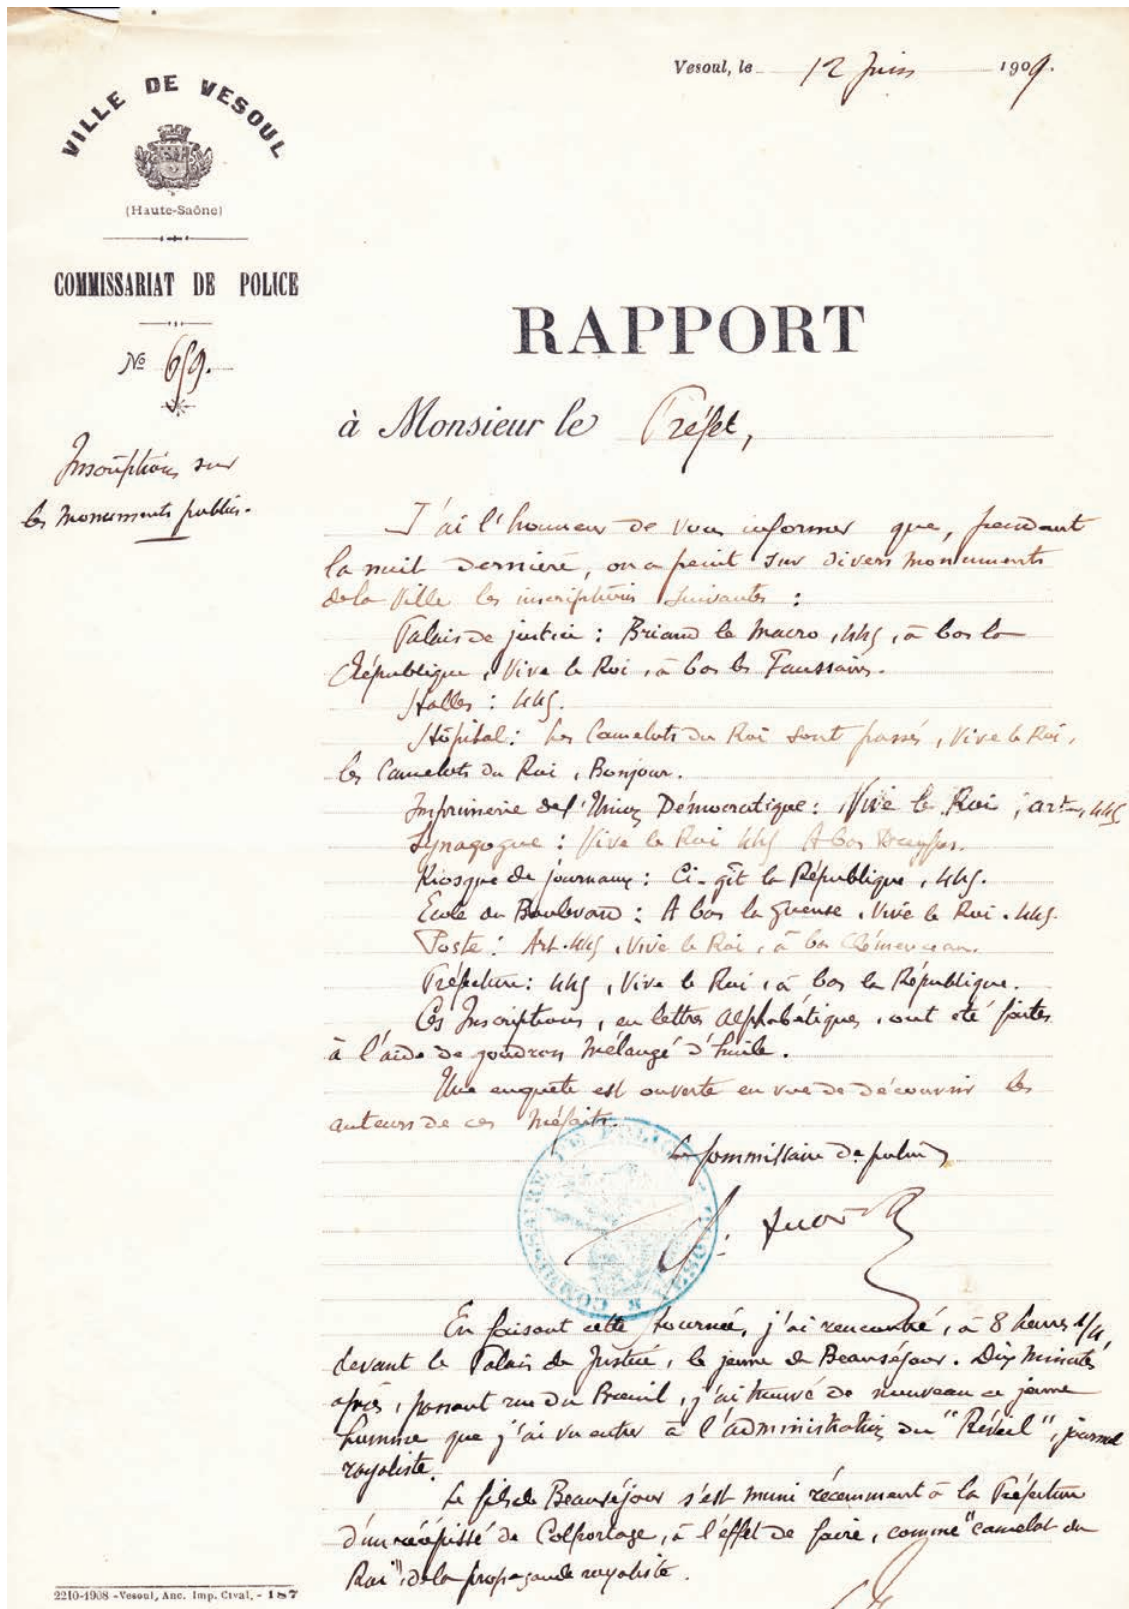 Vesoul, le 12 Juin 1909.
VILLE DE VESOUL
(Haute-Saône)
COMMISSARIAT DE POLICE
No 659.
Inscriptions sur
les monuments publics.
RAPPORT
à Monsieur le Préfet,
J'ai l'honneur de vous informer que, pendant
la nuit dernière, on a peint sur divers monuments
de la Ville les inscriptions suivantes :
Palais de justice : Briand le macro, 445, à bas la
République, Vive le Roi, à bas les Faussaires.
Halles : 445.
Hôpital : Les Camelots du Roi sont passés, Vive le Roi,
les Camelots du Roi, Bonjour.
Imprimerie de l'Union Démocratique : Vive le Roi, art. 445
Synagogue : Vive le Roi 445 A bas Dreyfus.
Kiosque de journaux : Ci-gît la République, 445.
Ecole du Boulevard : A bas la gueuse. Vive le Roi. 445.
Poste : Art. 445, Vive le Roi, à bas Clémenceau.
Préfecture : 445, Vive le Roi, à bas la République.
Ces Inscriptions, en lettres alphabétiques, ont été faites
à l'aide de goudron mélangé d'huile.
Une enquête est ouverte en vue de découvrir les
auteurs de ces méfaits.
Le Commissaire de police
COMMISSAIRE DE POLICE VESOUL
En faisant cette tournée, j'ai rencontré, à 8 heures 1/4,
devant le Palais de Justice, le jeune de Beauséjour. Dix minutes
après, passant rue du Breuil, j'ai trouvé de nouveau ce jeune
homme que j'ai vu entrer à l'administration du "Réveil", journal
royaliste.
Le fils de Beauséjour s'est muni récemment à la Préfecture
d'un récépissé de Colportage, à l'effet de faire, comme "camelot du
Roi", de la propagande royaliste.
2210-1908 - Vesoul, Anc. Imp. Cival. - 187